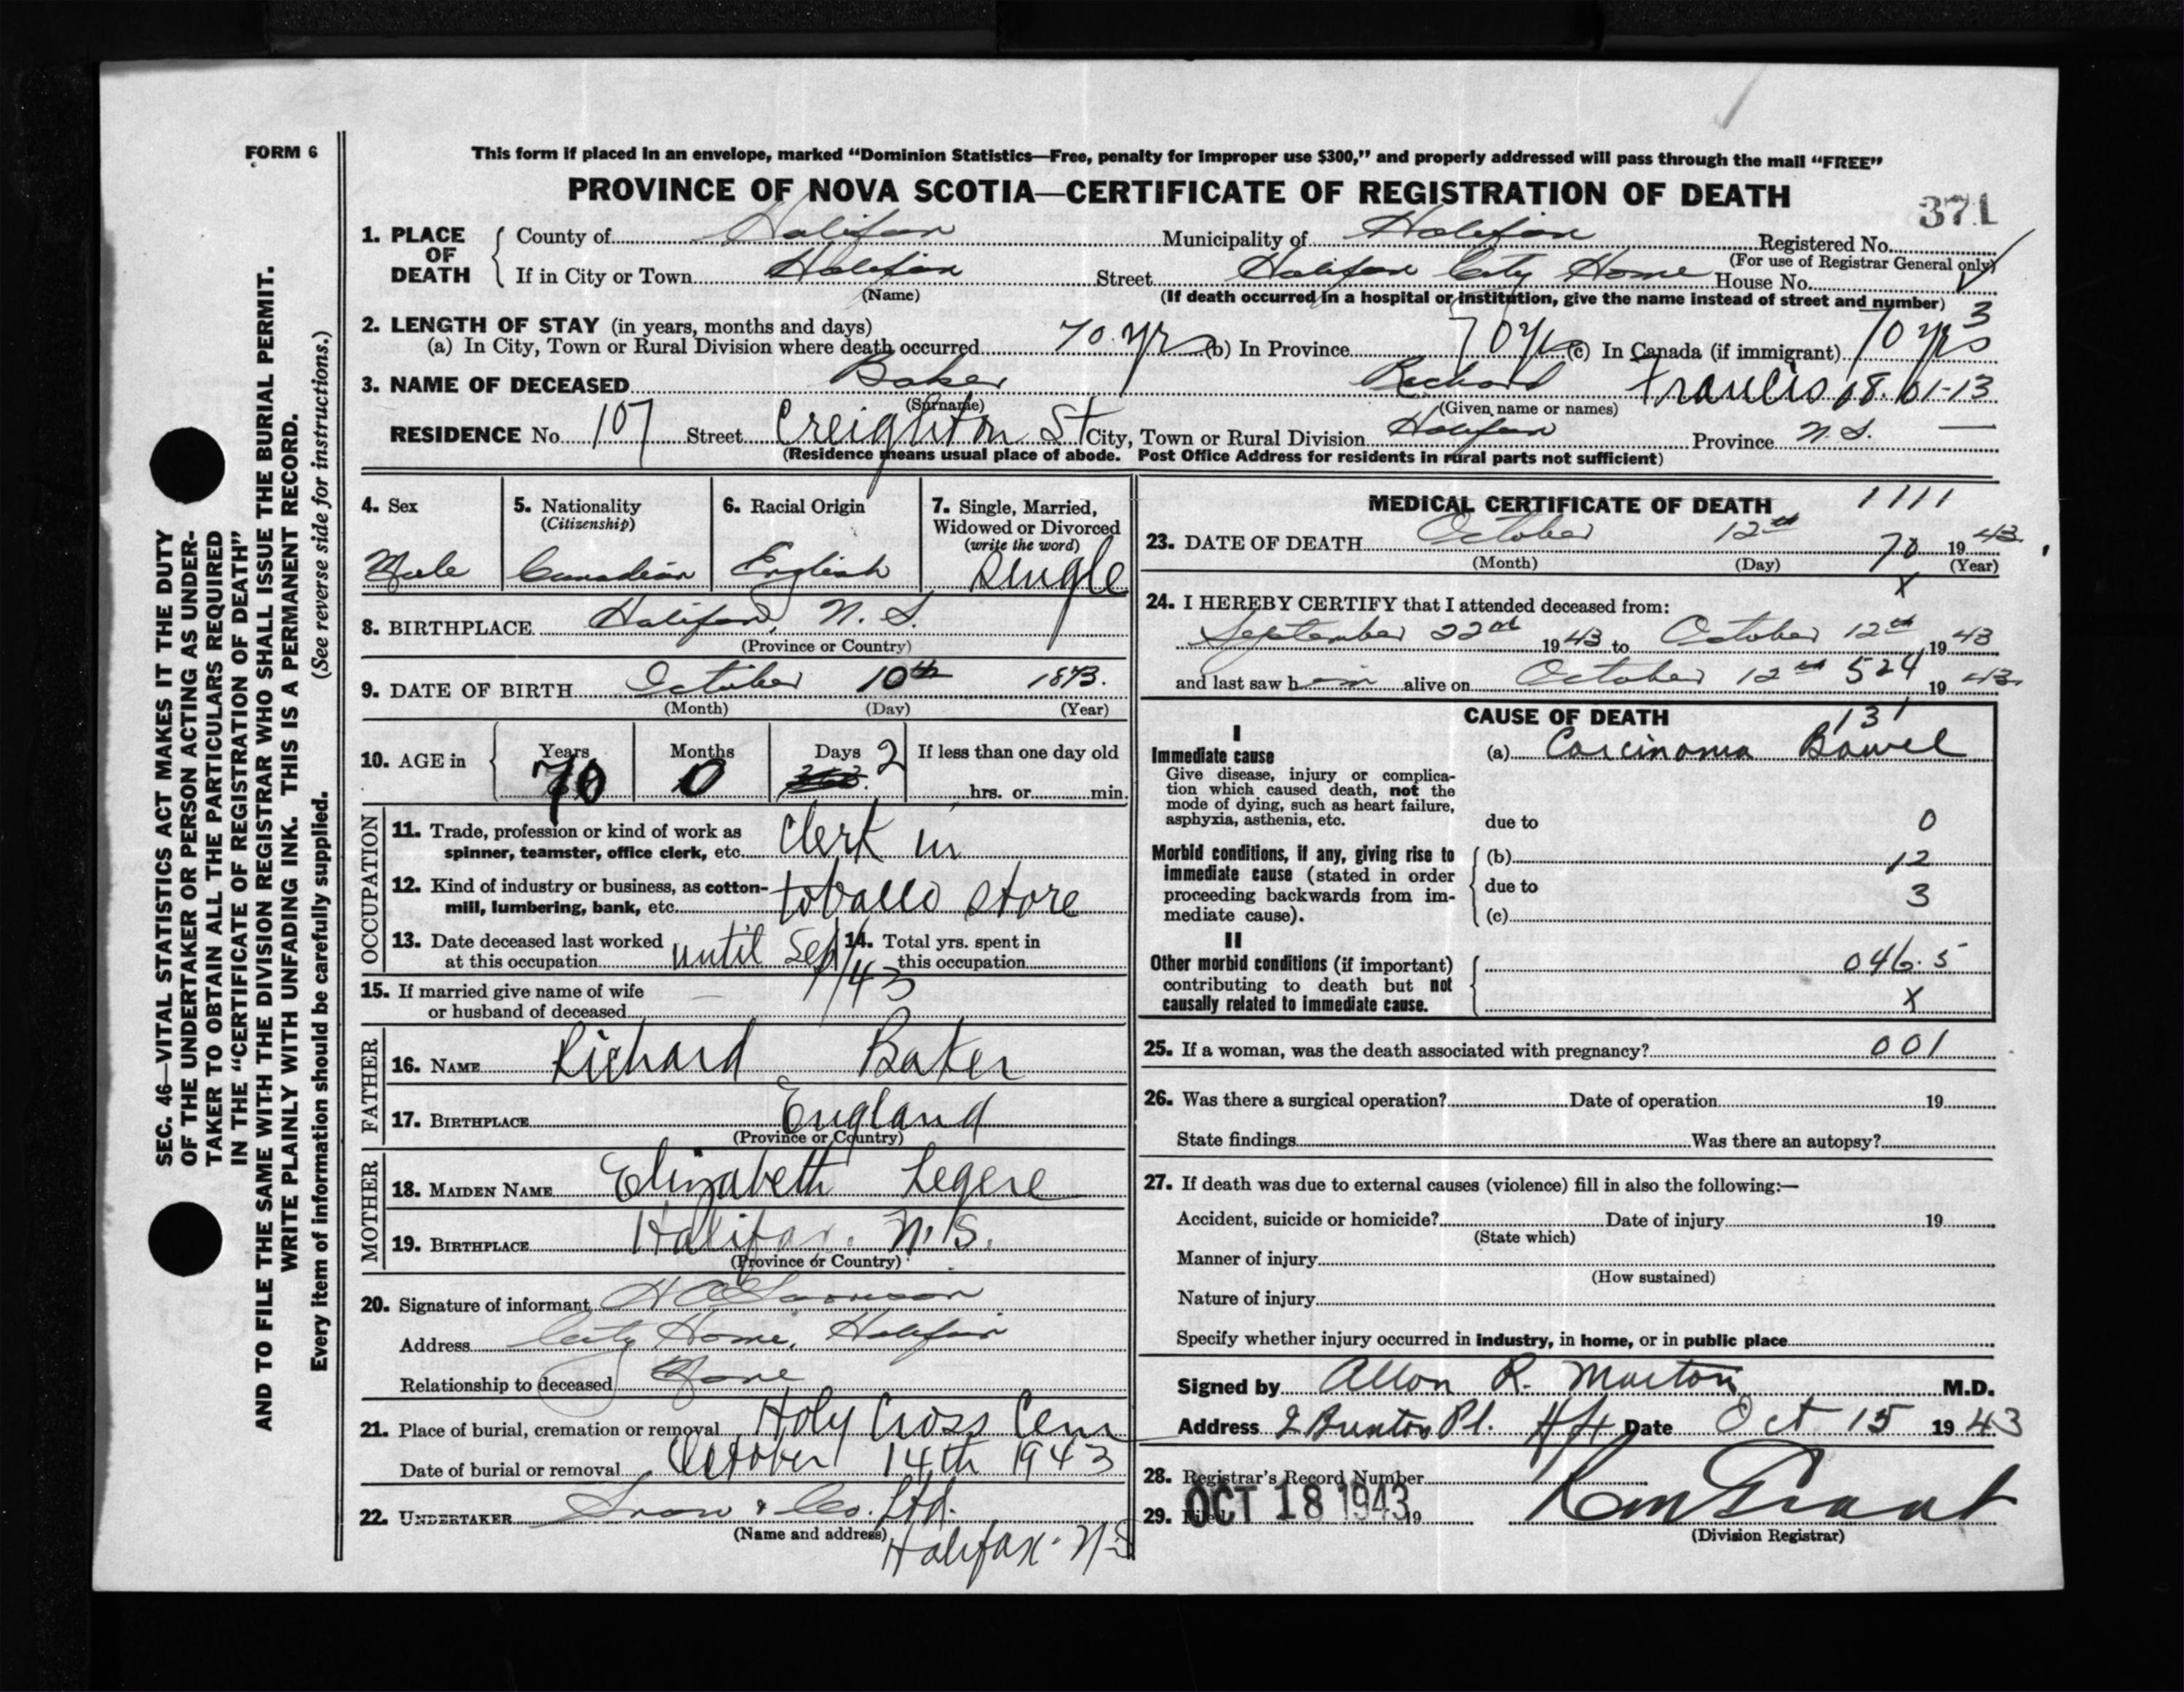 FORM 6
This form if placed in an envelope, marked “Dominion Statistics—Free, penalty for improper use $300,” and properly addressed will pass through the mail “FREE”
PROVINCE OF NOVA SCOTIA—CERTIFICATE OF REGISTRATION OF DEATH
371
1. PLACE OF DEATH
County of Halifax Municipality of Halifax Registered No.
(For use of Registrar General only)
If in City or Town Halifax Street Halifax City Home House No.
(Name) (If death occurred in a hospital or institution, give the name instead of street and number) 3
2. LENGTH OF STAY (in years, months and days)
(a) In City, Town or Rural Division where death occurred 70 yrs (b) In Province 70 yrs (c) In Canada (if immigrant) 70 yrs
3. NAME OF DECEASED Baker Richard Francis 08.01-13
(Surname) (Given name or names)
RESIDENCE No. 107 Street Creighton St City, Town or Rural Division Halifax Province N.S. —
(Residence means usual place of abode. Post Office Address for residents in rural parts not sufficient)
4. Sex
Male
5. Nationality
(Citizenship)
Canadian
6. Racial Origin
English
7. Single, Married,
Widowed or Divorced
(write the word)
Single
8. BIRTHPLACE Halifax, N. S.
(Province or Country)
9. DATE OF BIRTH October 10th 1873.
(Month) (Day) (Year)
10. AGE in
Years Months Days If less than one day old
70 0 2 hrs. or min.
OCCUPATION
11. Trade, profession or kind of work as
spinner, teamster, office clerk, etc. Clerk in
12. Kind of industry or business, as cotton-
mill, lumbering, bank, etc. tobacco store
13. Date deceased last worked
at this occupation until Sep/43
14. Total yrs. spent in
this occupation
15. If married give name of wife
or husband of deceased —
FATHER
16. NAME Richard Baker
17. BIRTHPLACE England
(Province or Country)
MOTHER
18. MAIDEN NAME Elizabeth Legere
19. BIRTHPLACE Halifax. N.S.
(Province or Country)
20. Signature of informant
Address City Home, Halifax
Relationship to deceased None
21. Place of burial, cremation or removal Holy Cross Cem
Date of burial or removal October 14th 1943
22. UNDERTAKER Snow & Co. Ltd.
(Name and address) Halifax. N-S
MEDICAL CERTIFICATE OF DEATH 1111
23. DATE OF DEATH October 12th 70 1943.
(Month) (Day) (Year)
X
24. I HEREBY CERTIFY that I attended deceased from:
September 22nd 1943 to October 12th, 1943
and last saw him alive on October 12th 524 1943.
CAUSE OF DEATH
131
I
Immediate cause
(a) Carcinoma Bowel
Give disease, injury or complica-
tion which caused death, not the
mode of dying, such as heart failure,
asphyxia, asthenia, etc.
due to 0
Morbid conditions, if any, giving rise to
immediate cause (stated in order
proceeding backwards from im-
mediate cause).
(b) 12
due to 3
(c)
II
Other morbid conditions (if important)
contributing to death but not
causally related to immediate cause.
046.5
X
25. If a woman, was the death associated with pregnancy? 001
26. Was there a surgical operation? Date of operation 19
State findings Was there an autopsy?
27. If death was due to external causes (violence) fill in also the following:—
Accident, suicide or homicide? Date of injury 19
(State which)
Manner of injury
(How sustained)
Nature of injury
Specify whether injury occurred in industry, in home, or in public place
Signed by Allan R. Morton M.D.
Address Pl. Hfx Date Oct 15 1943
28. Registrar's Record Number
29. OCT 18 1943 19
(Division Registrar)
SEC. 46—VITAL STATISTICS ACT MAKES IT THE DUTY
OF THE UNDERTAKER OR PERSON ACTING AS UNDER-
TAKER TO OBTAIN ALL THE PARTICULARS REQUIRED
IN THE “CERTIFICATE OF REGISTRATION OF DEATH”
AND TO FILE THE SAME WITH THE DIVISION REGISTRAR WHO SHALL ISSUE THE BURIAL PERMIT.
WRITE PLAINLY WITH UNFADING INK. THIS IS A PERMANENT RECORD.
Every item of information should be carefully supplied. (See reverse side for instructions.)